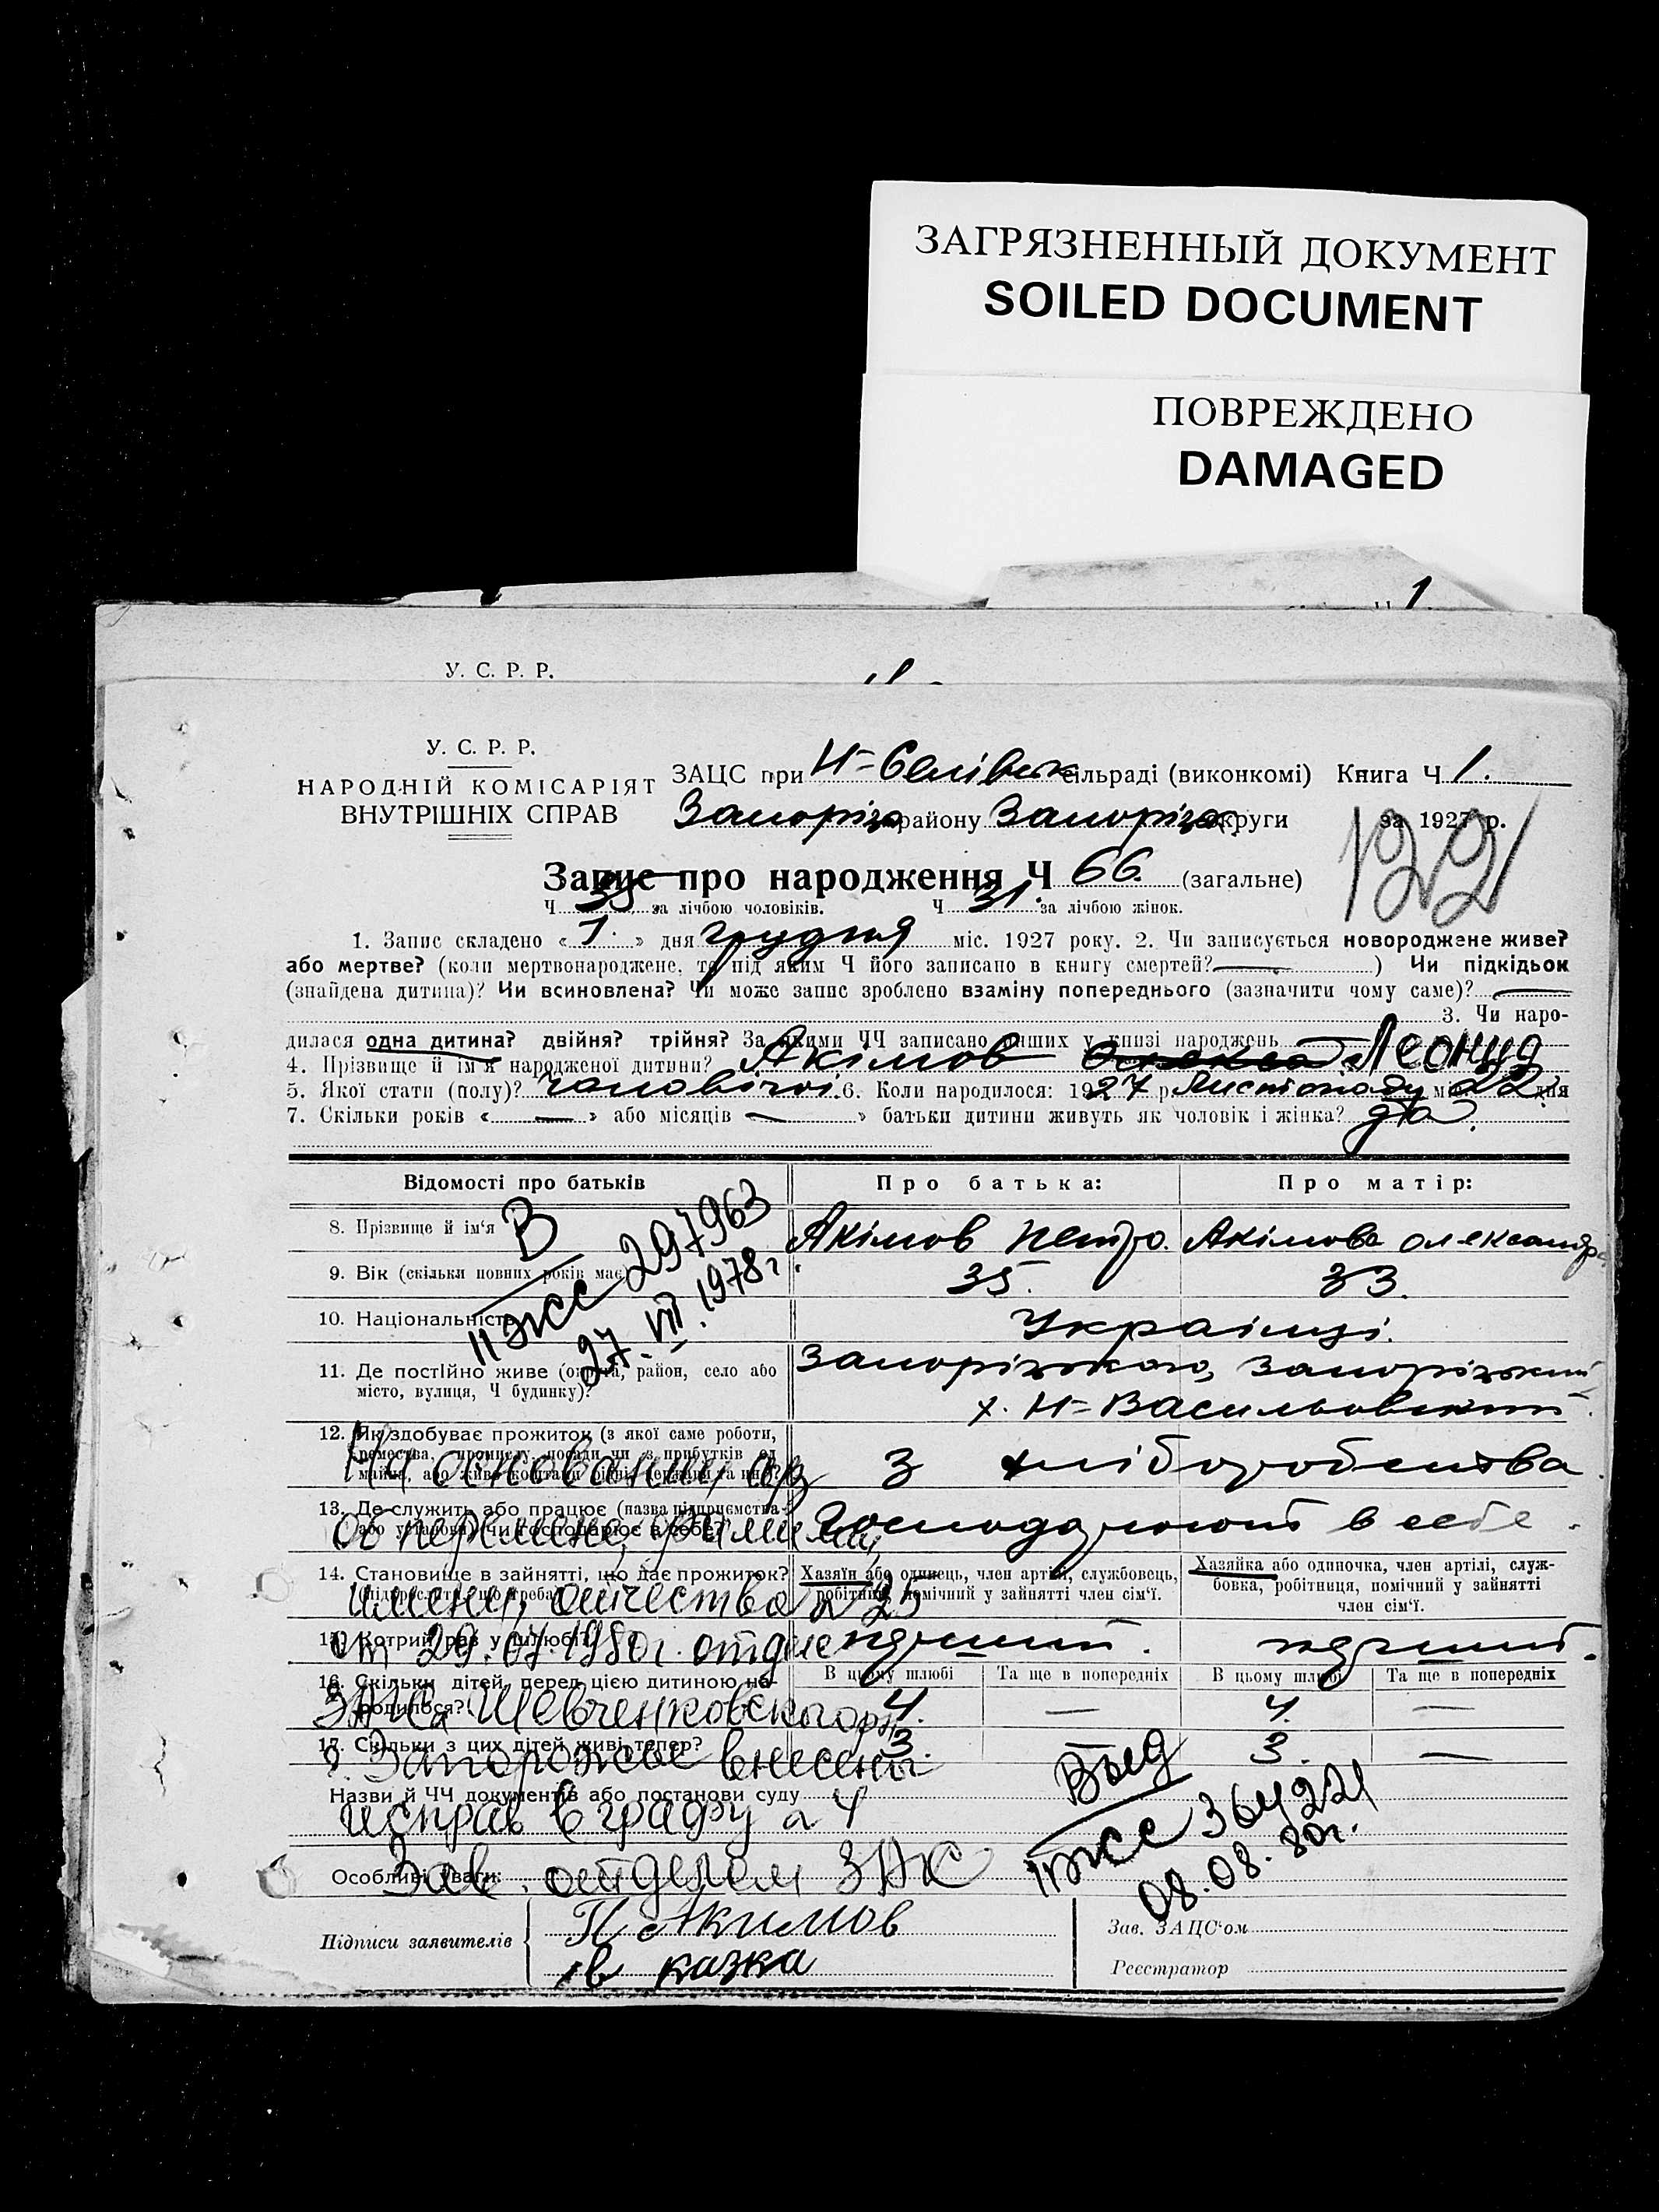 ЗАГРЯЗНЕННЫЙ ДОКУМЕНТ
SOILED DOCUMENT
ПОВРЕЖДЕНО
DAMAGED
1
У. С. Р. Р.
У. С. Р. Р.
НАРОДНІЙ КОМІСАРІЯТ
ВНУТРІШНІХ СПРАВ
ЗАЦС при Н=Селівськ сільраді (виконкомі) Книга Ч 1.
Запоріз району Запоріз округи за 1927 р.
122
Запис про народження Ч 66. (загальне)
Ч 35 за лічбою чоловіків. Ч 31. за лічбою жінок.
1. Запис складено « 1. » дня грудня міс. 1927 року. 2. Чи записується новороджене живе?
або мертве? (коли мертвонароджене, то під яким Ч його записано в книгу смертей? — ) Чи підкідьок
(знайдена дитина)? Чи всиновлена? Чи може запис зроблено взаміну попереднього (зазначити чому саме)? —
3. Чи наро-
дилася одна дитина? двійня? трійня? За якими ЧЧ записано інших у книзі народжень
4. Прізвище й ім'я народженої дитини? Акімов Олексій Леонид
5. Якої стати (полу)? чоловічої. 6. Коли народилося: 1927 р. Листопаду міс. 22 дня
7. Скільки років « — » або місяців — » батьки дитини живуть як чоловік і жінка? два.
Відомості про батьків Про батька: Про матір:
8. Прізвище й ім'я Акімов Петро. Акімова Олександра
9. Вік (скільки повних років має) 35. 33.
10. Національність Українці.
11. Де постійно живе (округа, район, село або місто, вулиця, Ч будинку)? Запорізького, Запорізький
х. Н=Васильовський.
В
II ЖС 297963
27. VIII. 1978 г
12. Як здобуває прожиток (з якої саме роботи,
ремества, промислу, посади чи з прибутків од
майна, або живе коштами рідні, держави та инш.? З хліборобства.
13. Де служить або працює (назва підприємства
або установи) чи господарює в себе? Господарюють в себе.
14. Становище в зайнятті, що дає прожиток?
(підкреслити, що треба)
Хазяїн або одинець, член артілі, службовець,
робітник, помічний у зайнятті член сім'ї.
Хазяйка або одиночка, член артілі, служ-
бовка, робітниця, помічний у зайнятті
член сім'ї.
15. Котрий раз у шлюбі? перший. перший.
16. Скільки дітей перед цією дитиною на-
родилося?
В цьому шлюбі Та ще в попередніх В цьому шлюбі Та ще в попередніх
4. — 4. —
17. Скільки з цих дітей живі тепер? 3. — 3. —
Назви й ЧЧ документів або постанови суду
Особливі уваги:
На основании а/з
об перемене, фамилии,
имени, отчества № 25
от 29.07.1980г. отдела
ЗАГСа Шевченковского р/н
г. Запорожье внесены
исправ в графу № 4
Зав. отделом ЗАГС
Выд
II ЖС 364221
08.08.80г.
Підписи заявителів П Акимов
казка
Зав. ЗАЦС'ом
Реєстратор